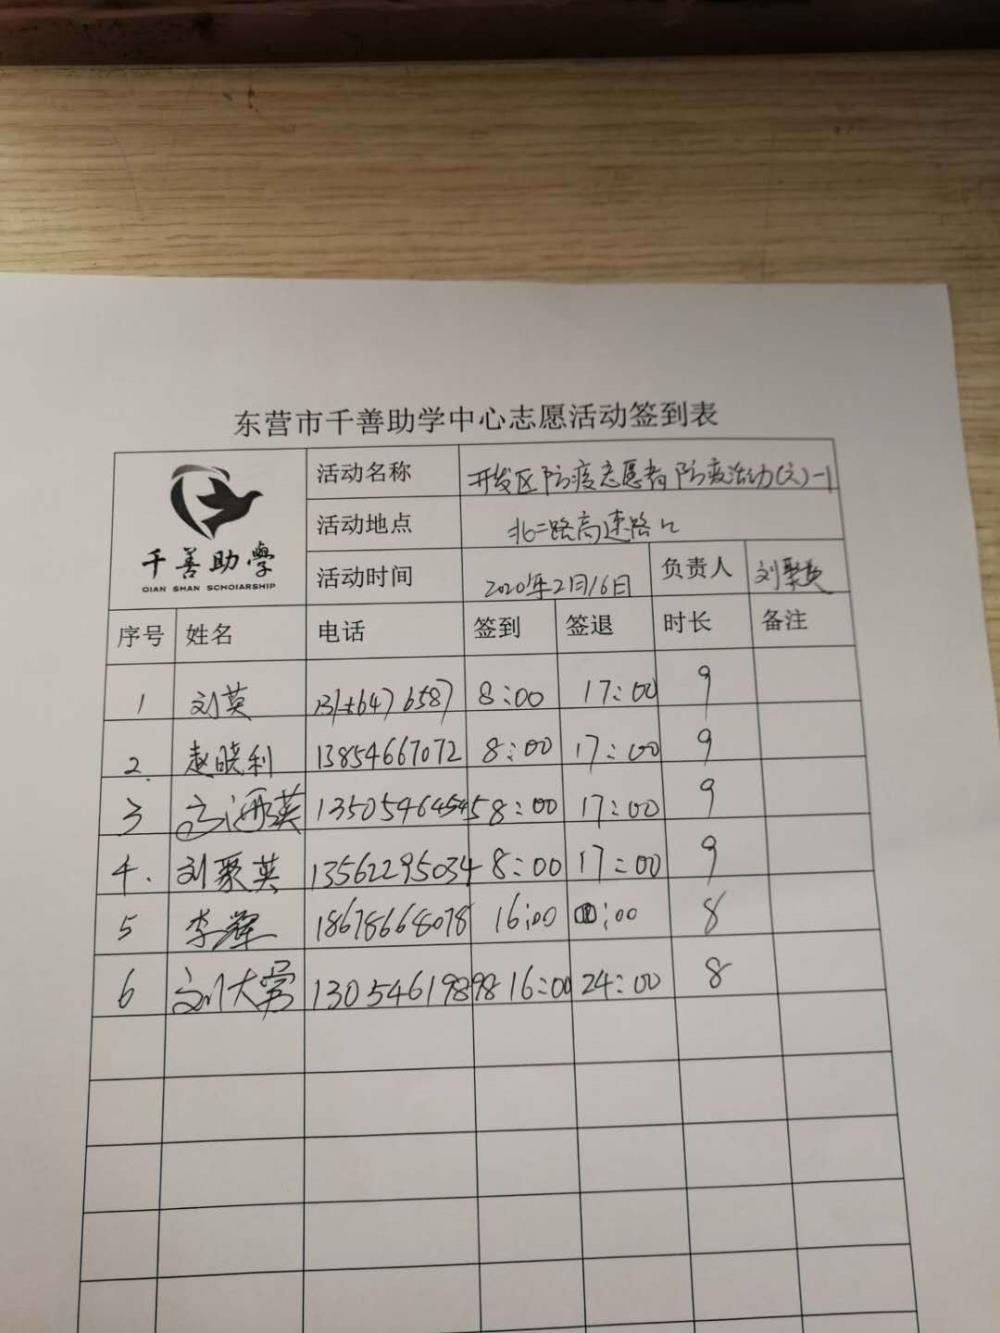 东营市千善助学中心志愿活动签到表
千善助學
QIAN SHAN SCHOIARSHIP
活动名称 开发区防疫志愿者防疫活动(六)-1
活动地点 北二路高速路口
活动时间 2020年2月16日 负责人 刘聚英
序号 姓名 电话 签到 签退 时长 备注
1 刘英 8:00 17:00 9
2. 赵晓利 13854667072 8:00 17:00 9
3 英 13505464545 8:00 17:00 9
4. 刘聚英 13562295034 8:00 17:00 9
5 李辉 18678668078 16:00 :00 8
6 刘大 13054619898 16:00 24:00 8